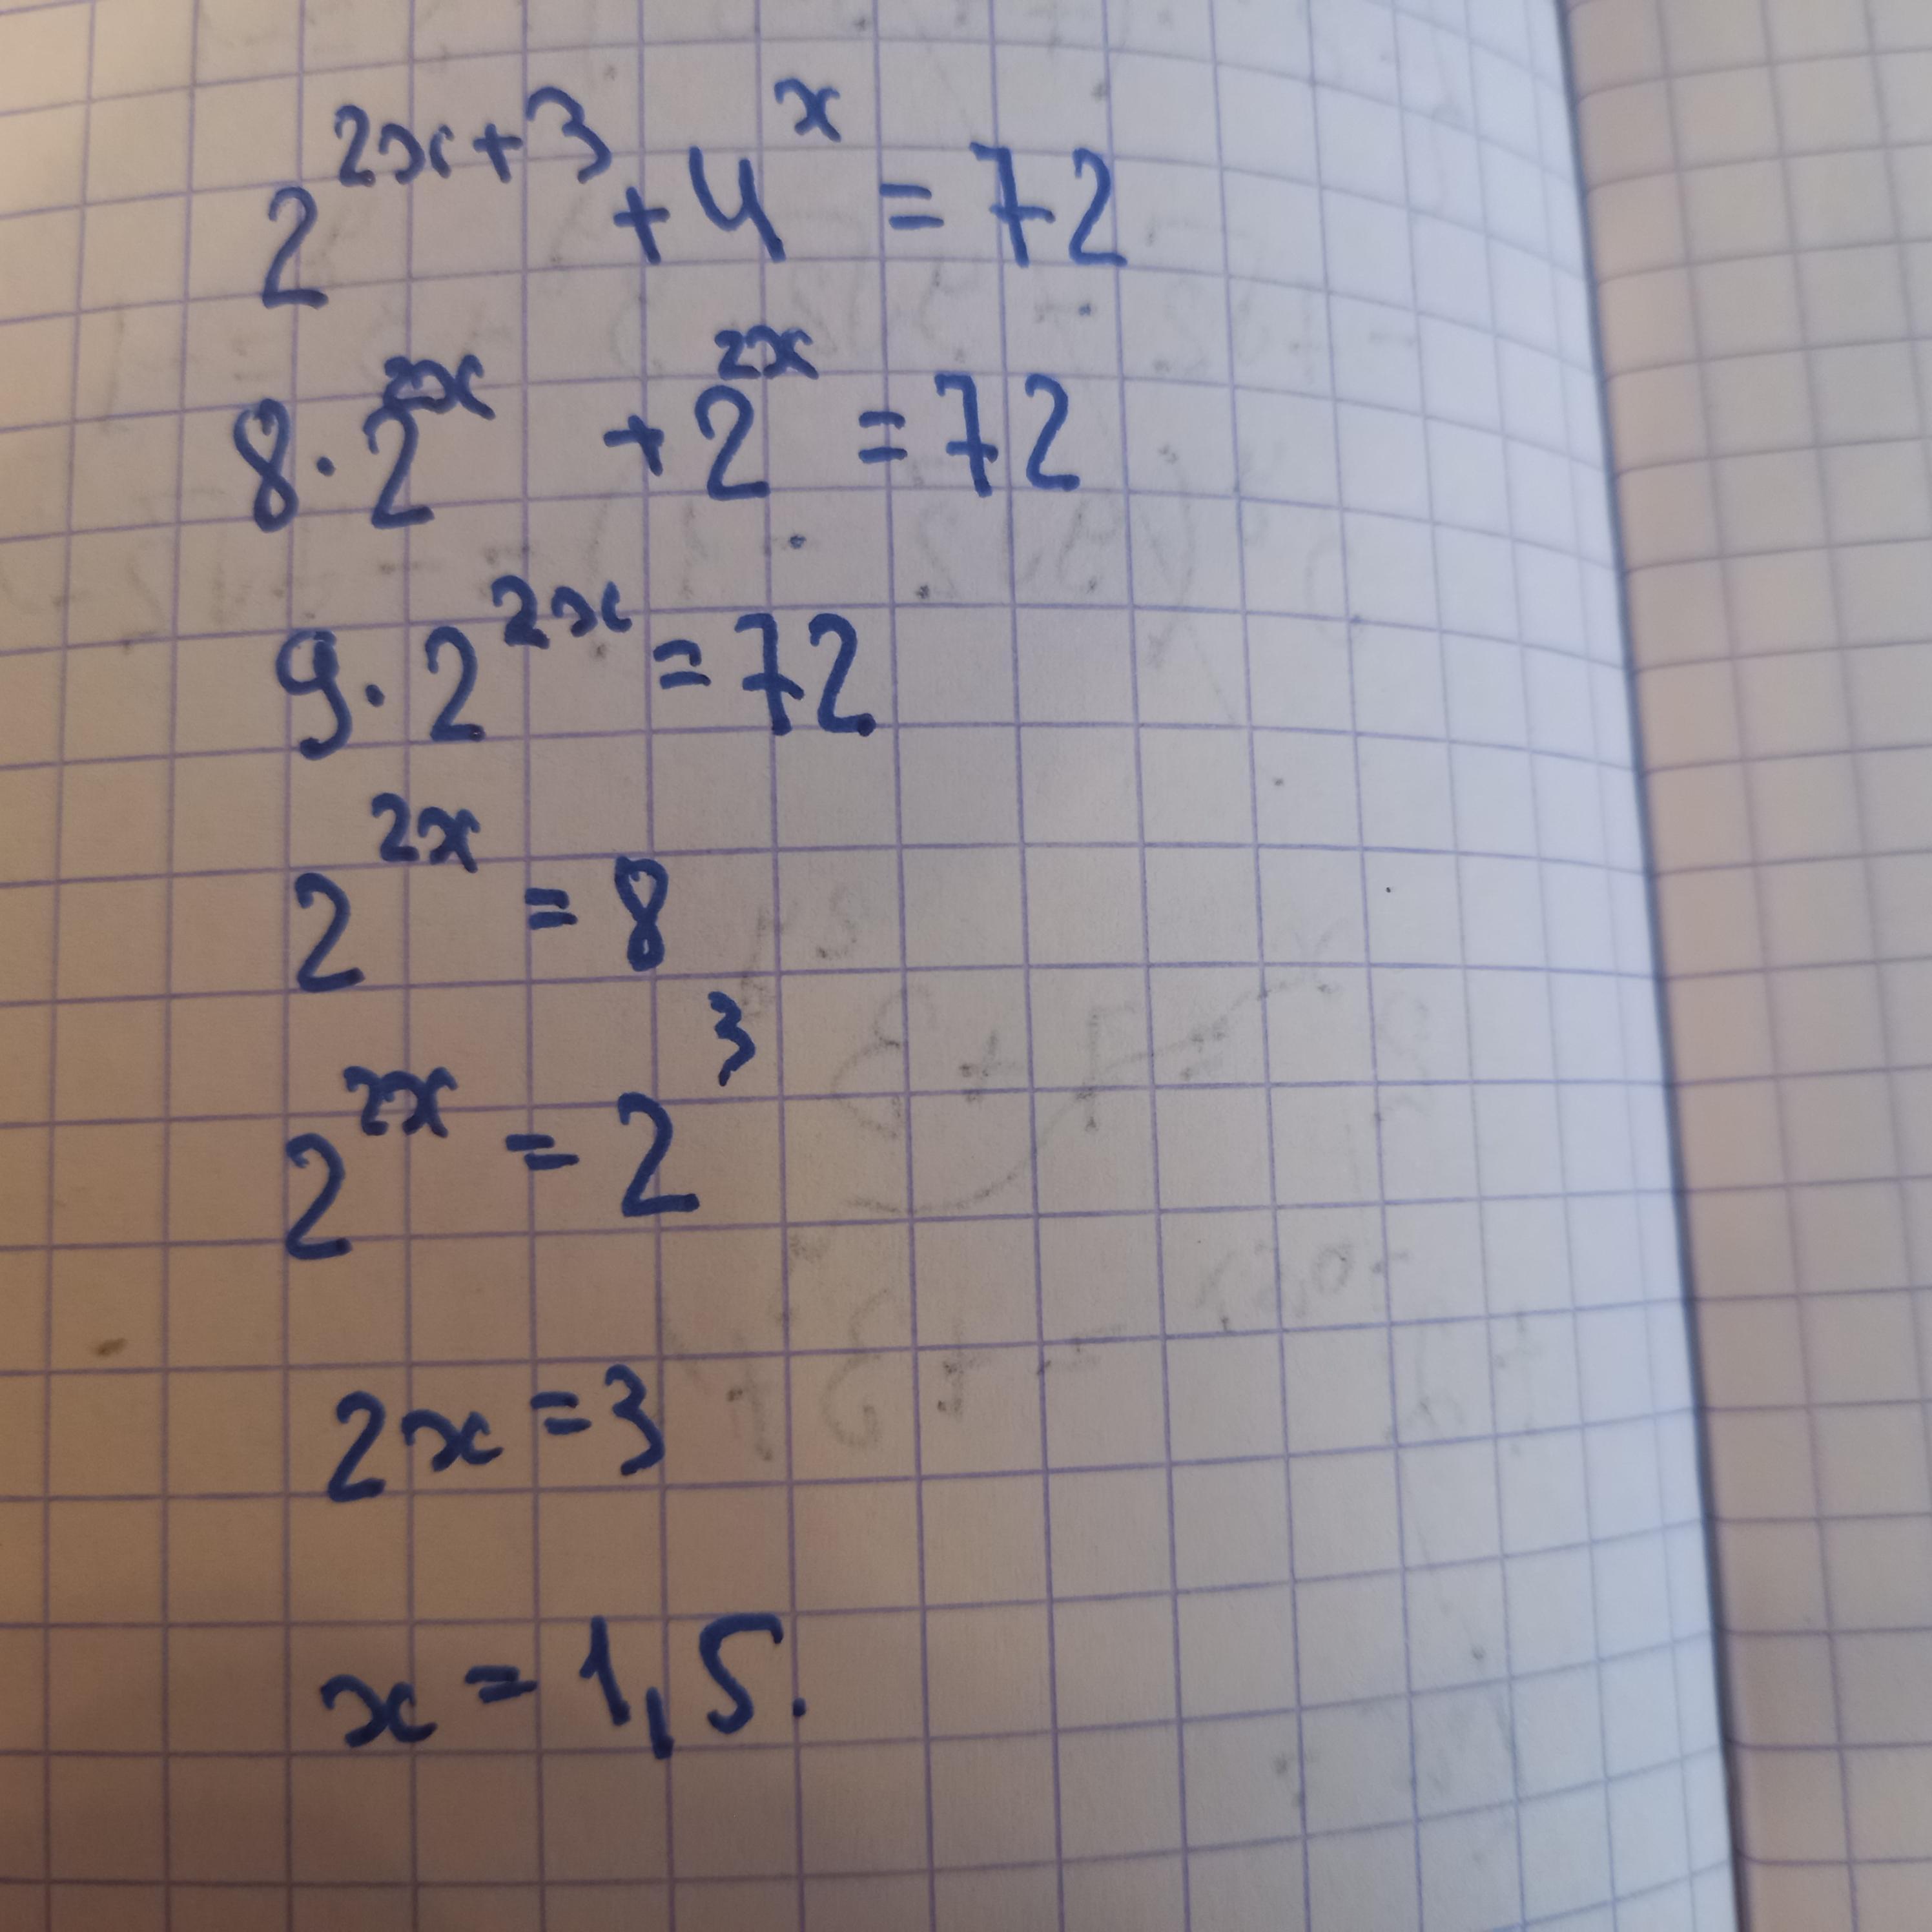 2^{2x+3} + 4^x = 72
8 · 2^{2x} + 2^{2x} = 72
9 · 2^{2x} = 72
2^{2x} = 8
2^{2x} = 2^3
2x = 3
x = 1,5.